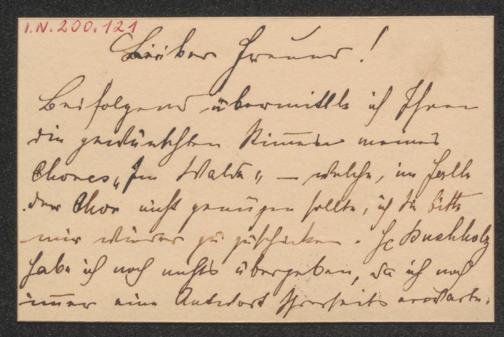 I.N. 200.121
Lieber Freund!
Beifolgend übermittle ich Ihnen
die gewünschten Stimmen meines
Chores „Im Walde“ – welche, im Falle
der Chor nicht genügen sollte, ich Sie bitte
mir wieder zu zuschicken. Buchholz
habe ich noch nichts übergeben, da ich noch
immer eine Antwort Ihrerseits erwarte.